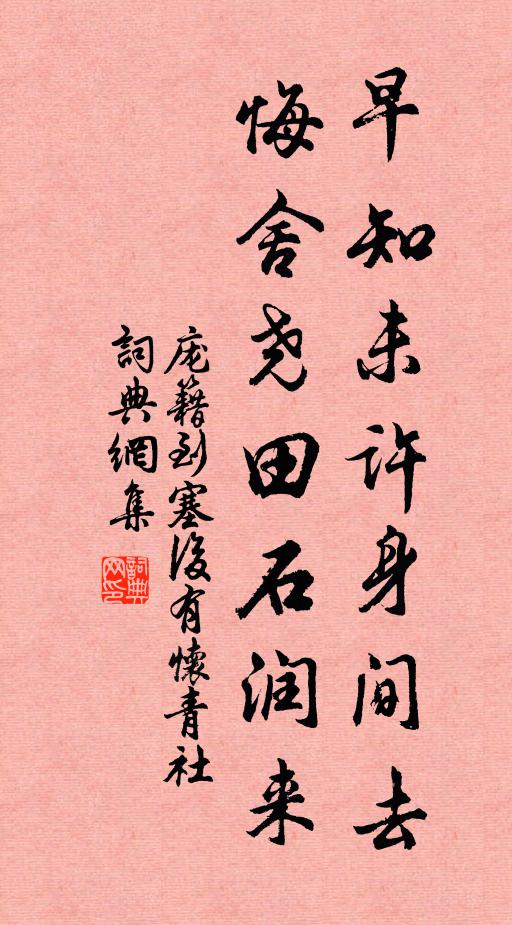 早知未许身间去
悔舍尧田石润来
庞籍到塞後有懷青社
詞典網集
詞典网印